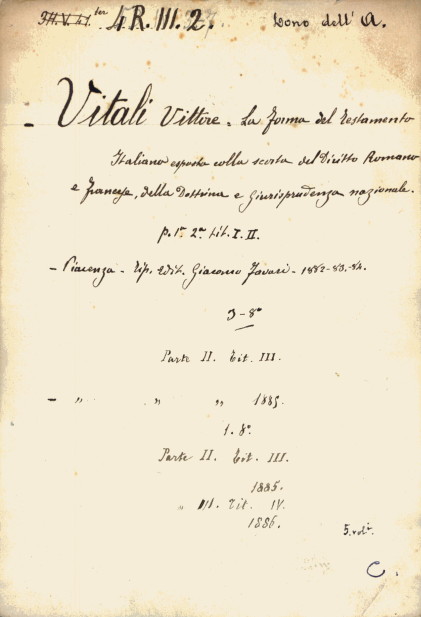 4. R. III. 2. Dono dell' A.
- Vitali Vittore - La Forma del Testamento
Italiano esposta colla scorta del Diritto Romano
e Francese, della Dottrina e Giurisprudenza nazionale.
p. 1ª 2ª tit. I. II.
- Piacenza - Tip. Edit. Giacomo Favari - 1882-83-84.
3-8º
Parte II. Tit. III.
- „ „ „ 1885.
1. 8º.
Parte II. Tit. III.
1885.
„ III. Tit. IV.
1886.
5. vol.
C.